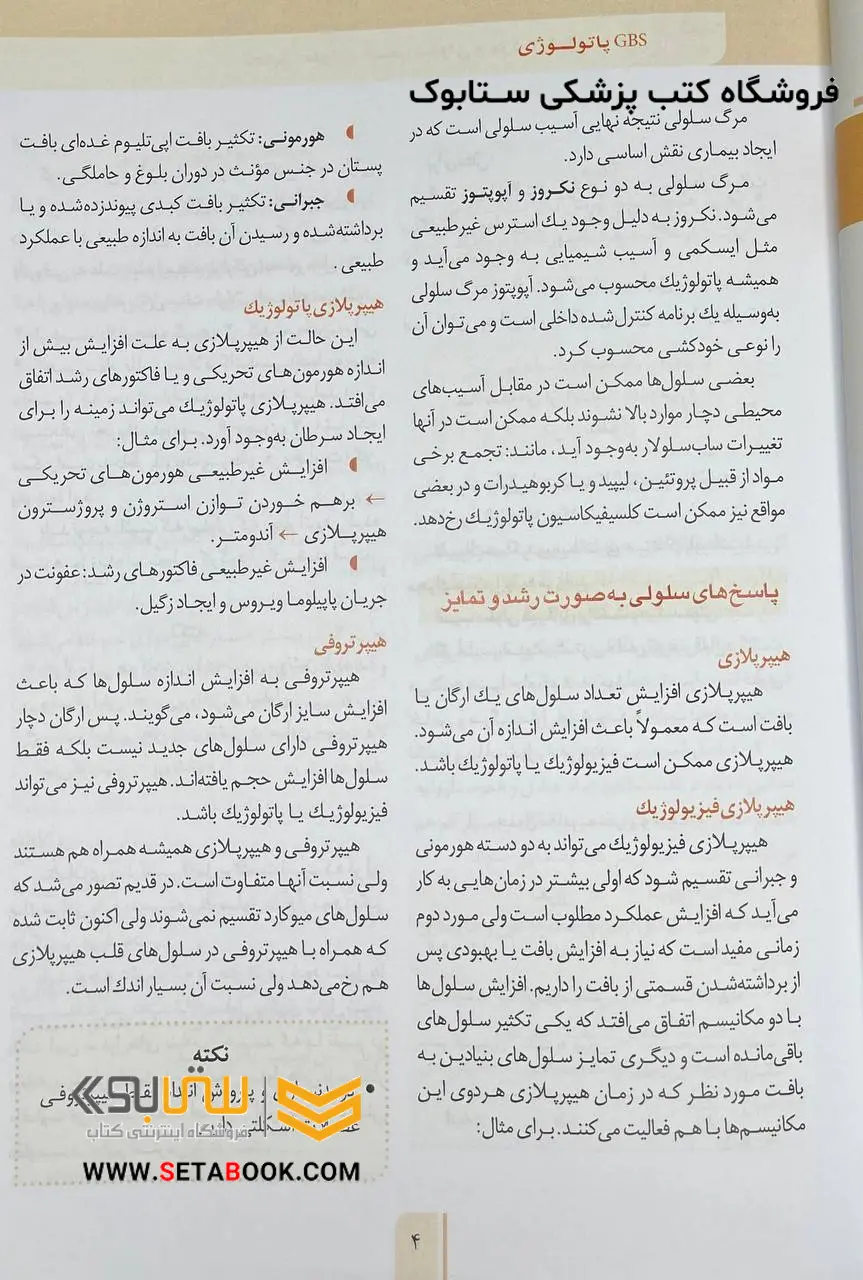 GBS پاتولوژی
فروشگاه کتب پزشکی ستابوک
مرگ سلولی نتیجه نهایی آسیب سلولی است که در
ایجاد بیماری نقش اساسی دارد.
مرگ سلولی به دو نوع نکروز و آپوپتوز تقسیم
می‌شود. نکروز به دلیل وجود یك استرس غیرطبیعی
مثل ایسکمی و آسیب شیمیایی به وجود می‌آید و
همیشه پاتولوژیك محسوب می‌شود. آپوپتوز مرگ سلولی
به‌وسیله یك برنامه کنترل‌شده داخلی است و می‌توان آن
را نوعی خودکشی محسوب کرد.
بعضی سلول‌ها ممکن است در مقابل آسیب‌های
محیطی دچار موارد بالا نشوند بلکه ممکن است در آنها
تغییرات ساب‌سلولار به‌وجود آید، مانند: تجمع برخی
مواد از قبیل پروتئین، لیپید و یا کربوهیدرات و در بعضی
مواقع نیز ممکن است کلسیفیکاسیون پاتولوژیك رخ‌دهد.
پاسخ‌های سلولی به‌صورت رشد و تمایز
هیپرپلازی
هیپرپلازی افزایش تعداد سلول‌های یك ارگان یا
بافت است که معمولاً باعث افزایش اندازه آن می‌شود.
هیپرپلازی ممکن است فیزیولوژیك یا پاتولوژیك باشد.
هیپرپلازی فیزیولوژیك
هیپرپلازی فیزیولوژیك می‌تواند به دو دسته هورمونی
و جبرانی تقسیم شود که اولی بیشتر در زمان‌هایی به کار
می‌آید که افزایش عملکرد مطلوب است ولی مورد دوم
زمانی مفید است که نیاز به افزایش بافت یا بهبودی پس
از برداشته‌شدن قسمتی از بافت را داریم. افزایش سلول‌ها
با دو مکانیسم اتفاق می‌افتد که یکی تکثیر سلول‌های
باقی‌مانده است و دیگری تمایز سلول‌های بنیادین به
بافت مورد نظر که در زمان هیپرپلازی هردوی این
مکانیسم‌ها با هم فعالیت می‌کنند. برای مثال:
هورمونی: تکثیر بافت اپی‌تلیوم غده‌ای بافت
پستان در جنس مؤنث در دوران بلوغ و حاملگی.
جبرانی: تکثیر بافت کبدی پیوندزده‌شده و یا
برداشته‌شده و رسیدن آن بافت به اندازه طبیعی با عملکرد
طبیعی .
هیپرپلازی پاتولوژیك
این حالت از هیپرپلازی به علت افزایش بیش از
اندازه هورمون‌های تحریکی و یا فاکتورهای رشد اتفاق
می‌افتد. هیپرپلازی پاتولوژیك می‌تواند زمینه را برای
ایجاد سرطان به‌وجود آورد. برای مثال:
افزایش غیرطبیعی هورمون‌های تحریکی
← برهم خوردن توازن استروژن و پروژسترون
هیپرپلازی ← آندومتر.
افزایش غیرطبیعی فاکتورهای رشد: عفونت در
جریان پاپیلوما ویروس و ایجاد زگیل.
هیپرتروفی
هیپرتروفی به افزایش اندازه سلول‌ها که باعث
افزایش سایز ارگان می‌شود، می‌گویند. پس ارگان دچار
هیپرتروفی دارای سلول‌های جدید نیست بلکه فقط
سلول‌ها افزایش حجم یافته‌اند. هیپرتروفی نیز می‌تواند
فیزیولوژیك یا پاتولوژیك باشد.
هیپرتروفی و هیپرپلازی همیشه همراه هم هستند
ولی نسبت آنها متفاوت است. در قدیم تصور می‌شد که
سلول‌های میوکارد تقسیم نمی‌شوند ولی اکنون ثابت شده
که همراه با هیپرتروفی در سلول‌های قلب هیپرپلازی
هم رخ‌می‌دهد ولی نسبت آن بسیار اندك است.
نکته
و پرورش هیپرتروفی
ستابوک
فروشگاه اینترنتی کتاب
WWW.SETABOOK.COM
۴